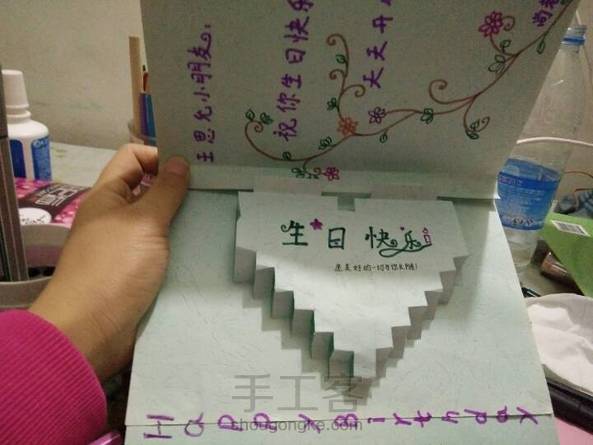 王思允小朋友:
祝你生日快乐
天天开
尚老
生日快乐
愿美好的一切与你长随!
HAPPY Birthday
手工客
shougongke.com